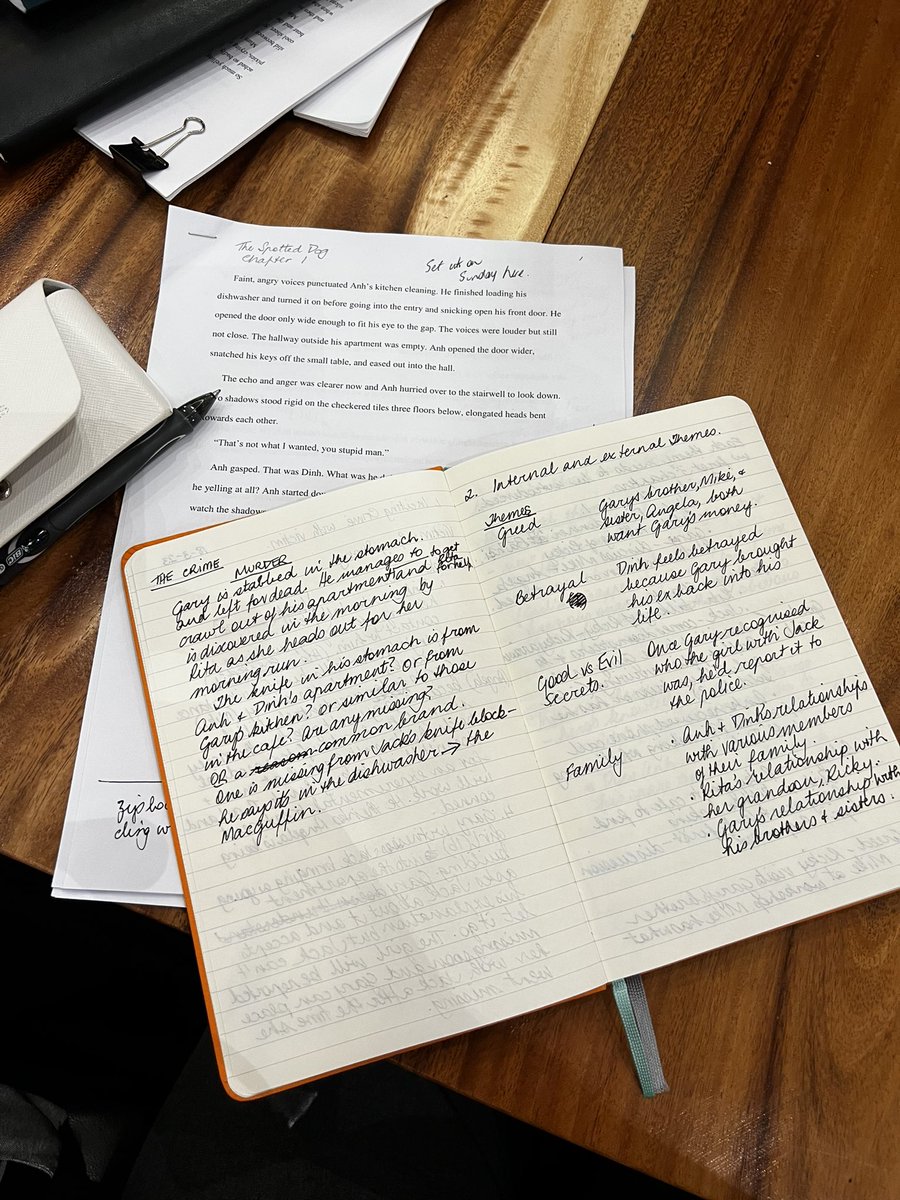 The Spotted Dog
Chapter 1
Set up on
Sunday hue.
Faint, angry voices punctuated Anh's kitchen cleaning. He finished loading his
dishwasher and turned it on before going into the entry and snicking open his front door. He
opened the door only wide enough to fit his eye to the gap. The voices were louder but still
not close. The hallway outside his apartment was empty. Anh opened the door wider,
snatched his keys off the small table, and eased out into the hall.
The echo and anger was clearer now and Anh hurried over to the stairwell to look down.
o shadows stood rigid on the checkered tiles three floors below, elongated heads bent
owards each other.
"That's not what I wanted, you stupid man."
Anh gasped. That was Dinh. What was he d
he yelling at all? Anh started dow
watch the shadow
BIC
THE CRIME MURDER
Gary is stabbed in the stomach.
and left for dead. He manages to to get
crawl out of his apartment and Rita for help
is discovered in the morning by
Rita as she heads out for her
morning run.
The knife in his stomach is from
Anh & Dinh's apartment? Or from
Gary's kitchen? Or similar to those
in the cafe? Are any missing?
OR a reason common brand.
One is missing from Jack's knife block -
he says its in the dishwasher → the
MacGuffin.
2. Internal and external Themes.
Themes
Greed
Garys brother, Mike, &
sister, Angela, both
want Gary's money.
Betrayal
Dinh feels betrayed
because Gary brought
his ex back into his
life.
Good vs Evil
Secrets.
Once Gary recognised
who the girl with Jack
was, he'd report it to
the police.
Family
· Anh & Dinh's relationships
with various members
of their family
· Rita's relationship with
her grandson, Ricky.
· Gary's relationship with
his brothers & sisters.